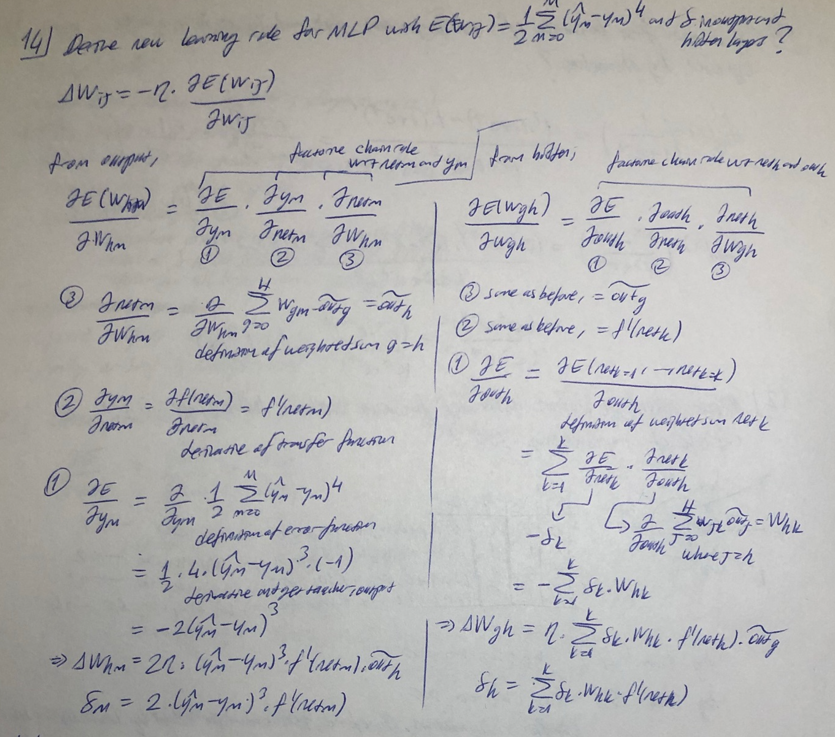 14) Derive new learning rule for MLP with E(w_ij) = 1/2 Σ_{m=0}^{M} (ŷ_m - y_m)^4 and δ in output and
hidden layers?
ΔW_ij = -η · ∂E(W_ij)/∂W_ij
from output,
factorize chain rule
w.r.t net_m and y_m
∂E(W_hm)/∂W_hm = ∂E/∂y_m · ∂y_m/∂net_m · ∂net_m/∂W_hm
① ② ③
③ ∂net_m/∂W_hm = ∂/∂W_hm Σ_{g=0}^{H} W_gm · out̃_g = out̃_h
definition of weighted sum g=h
② ∂y_m/∂net_m = ∂f(net_m)/∂net_m = f'(net_m)
derivative of transfer function
① ∂E/∂y_m = ∂/∂y_m · 1/2 Σ_{m=0}^{M} (ŷ_m - y_m)^4
definition of error function
= 1/2 · 4 · (ŷ_m - y_m)^3 · (-1)
derivative and get teacher, output
= -2(ŷ_m - y_m)^3
⇒ ΔW_hm = 2η · (ŷ_m - y_m)^3 · f'(net_m) · out̃_h
δ_m = 2 · (ŷ_m - y_m)^3 · f'(net_m)
from hidden;
factorize chain rule w.r.t net_h and out_h
∂E(W_gh)/∂W_gh = ∂E/∂out_h · ∂out_h/∂net_h · ∂net_h/∂W_gh
① ② ③
③ same as before, = out̃_g
② same as before, = f'(net_h)
① ∂E/∂out_h = ∂E(net_{k=1}, ..., net_{k=K})/∂out_h
definition of weighted sum net_k
= Σ_{k=1}^{K} ∂E/∂net_k · ∂net_k/∂out_h
-δ_k
∂/∂out_h Σ_{j=0}^{H} W_jk out̃_j = W_hk
where j=h
= -Σ_{k=1}^{K} δ_k · W_hk
⇒ ΔW_gh = η · Σ_{k=1}^{K} δ_k · W_hk · f'(net_h) · out̃_g
δ_h = Σ_{k=1}^{K} δ_k · W_hk · f'(net_h)